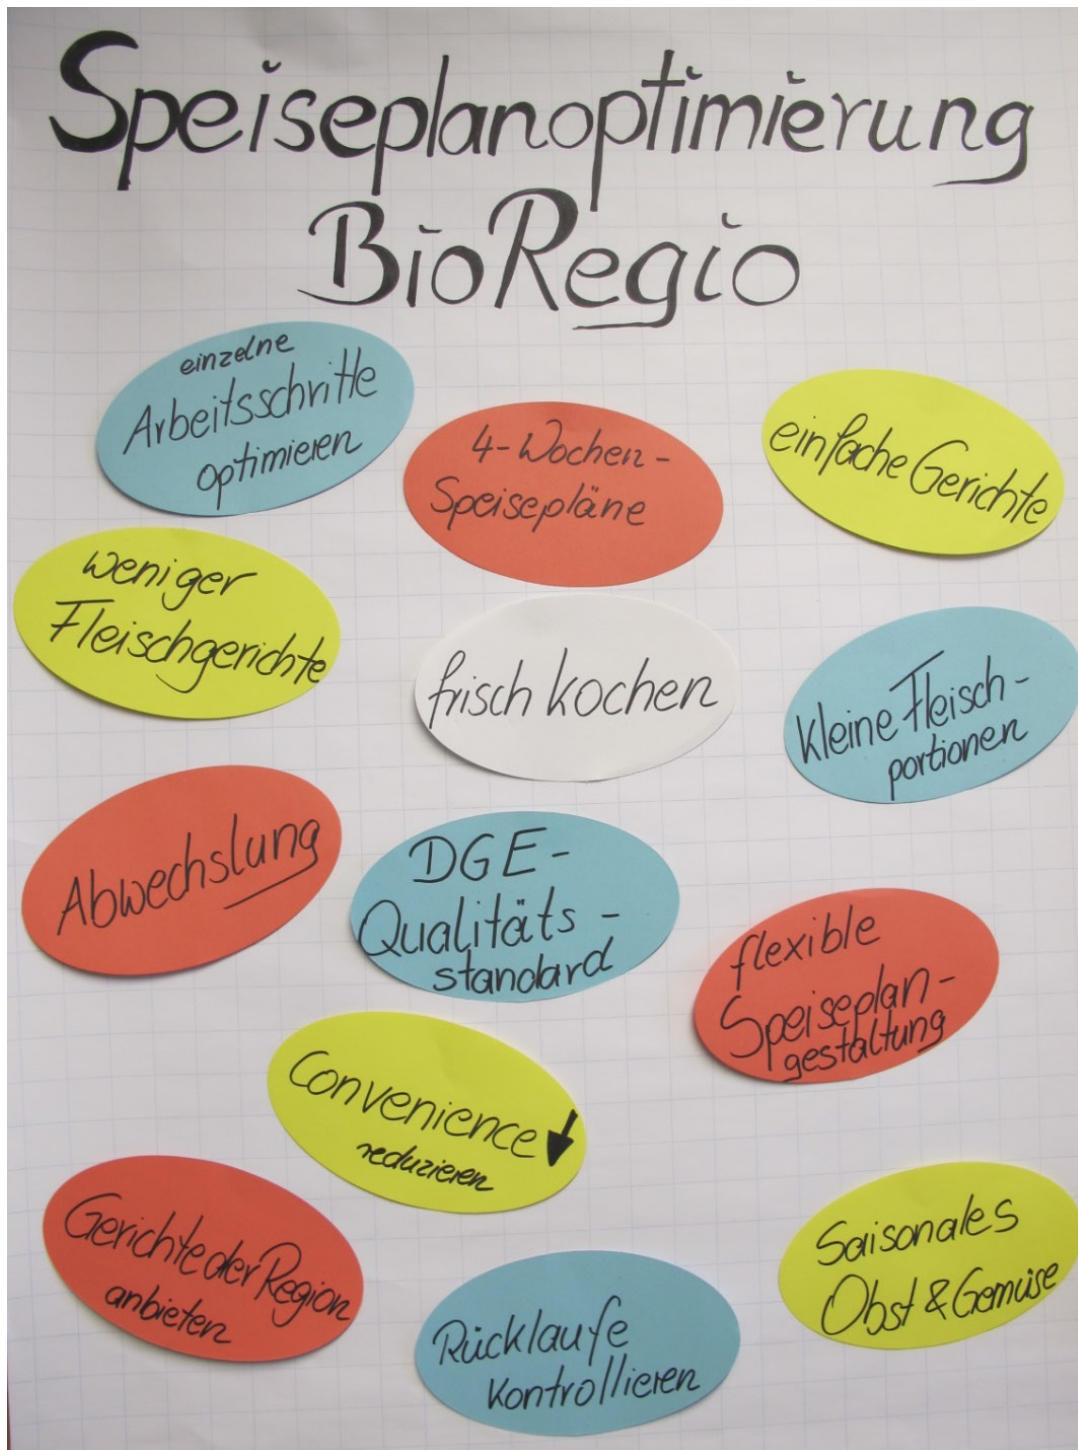 Speiseplanoptimierung
BioRegio
einzelne
Arbeitsschritte
optimieren
4-Wochen-
Speisepläne
einfache Gerichte
weniger
Fleischgerichte
frisch kochen
kleine Fleisch-
portionen
Abwechslung
DGE-
Qualitäts-
standard
flexible
Speiseplan-
gestaltung
Convenience
reduzieren
Gerichte der Region
anbieten
Rücklaufe
kontrollieren
Saisonales
Obst & Gemüse